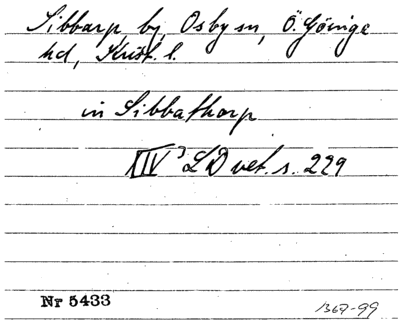 Sibbarp, by, Osby sn, Ö. Göinge
hd, Krist. l.
in Sibbathorp
XIV³ LD vet. s. 229
Nr 5433
1367-99